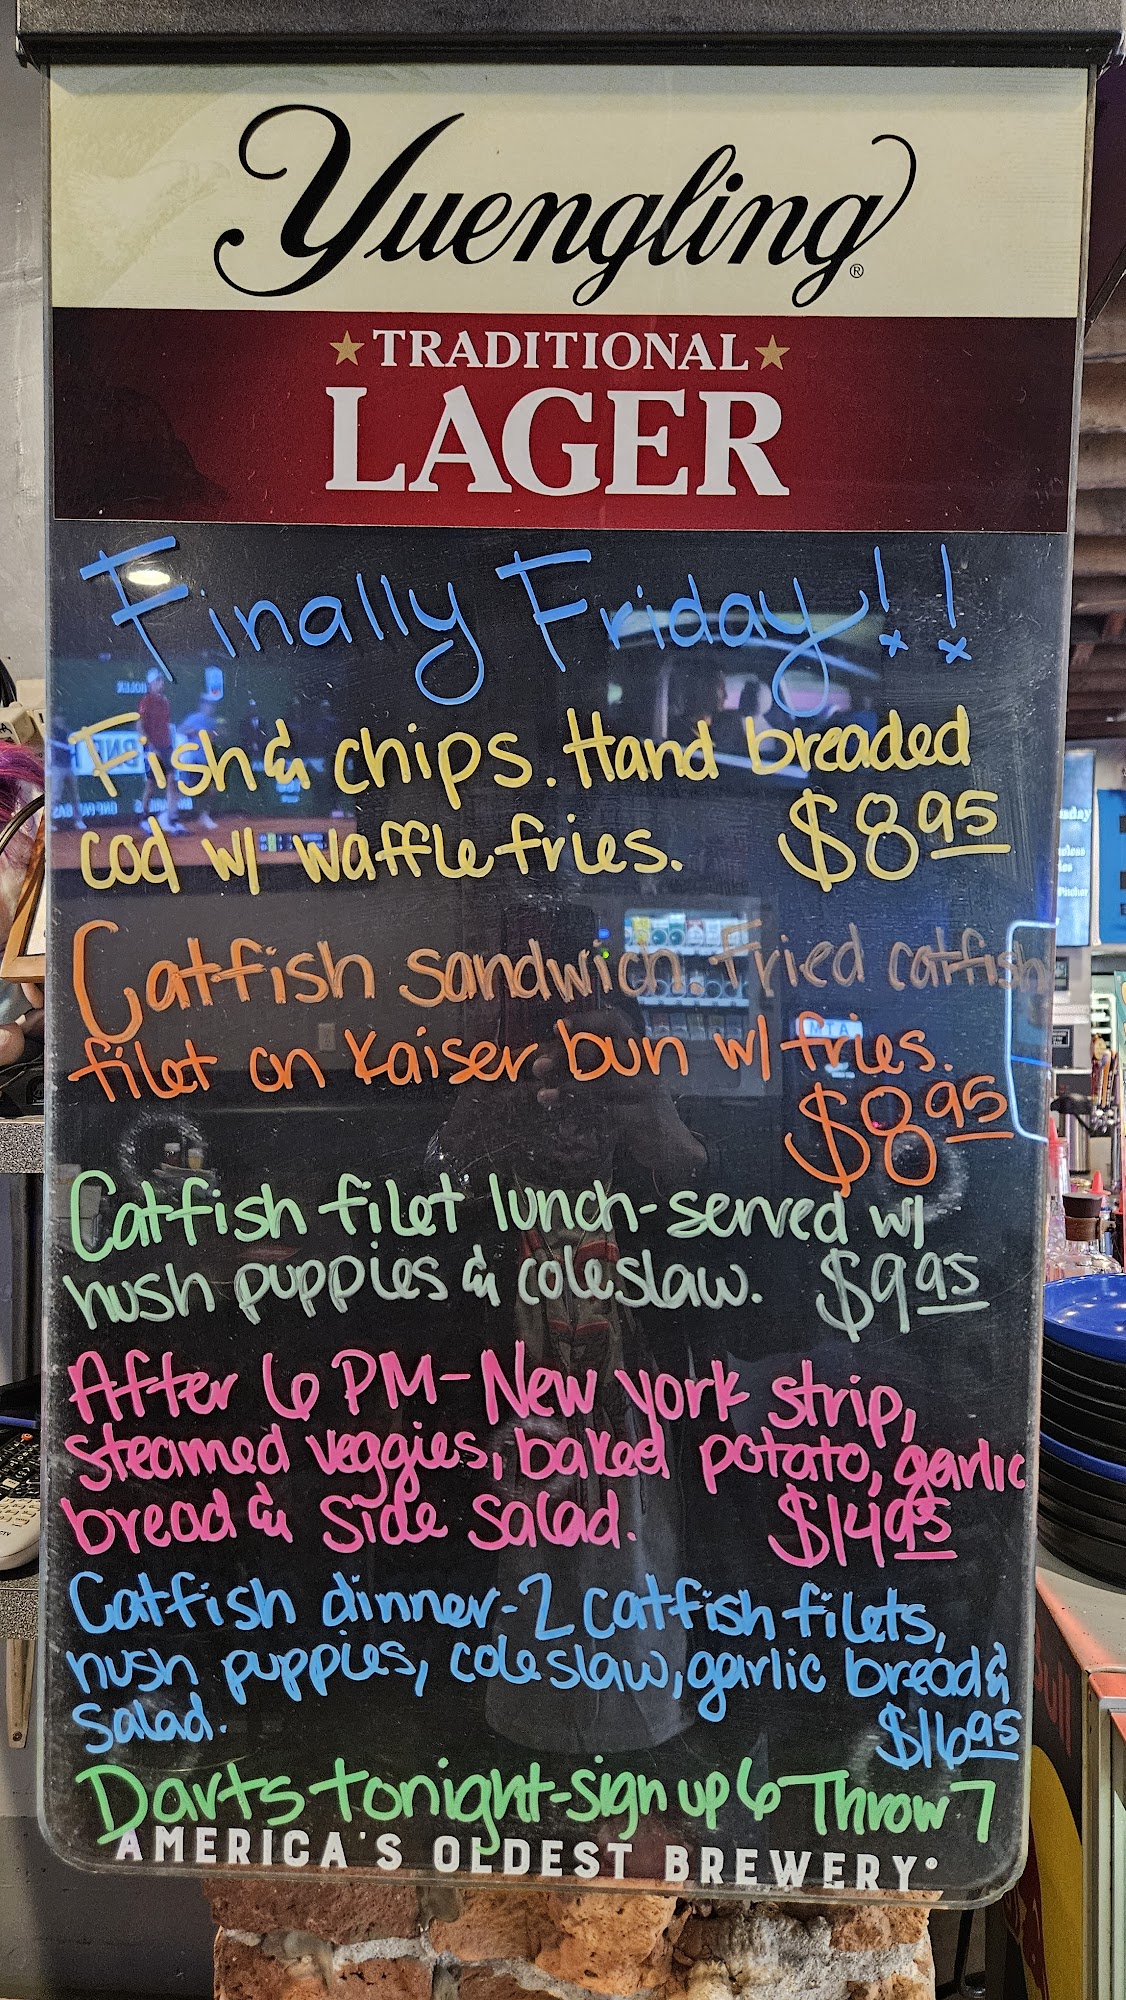 Yuengling®
TRADITIONAL
LAGER
Finally Friday!!
Fish & chips. Hand breaded
cod w/ waffle fries. $8.95
Catfish sandwich. Fried catfish
filet on Kaiser bun w/ fries.
$8.95
Catfish filet lunch-served w/
hush puppies & coleslaw. $9.95
After 6 PM-New york strip,
steamed veggies, baked potato, garlic
bread & side salad. $14.95
Catfish dinner-2 catfish filets,
hush puppies, coleslaw, garlic bread &
salad. $16.95
Darts tonight-sign up 6 Throw 7
AMERICA'S OLDEST BREWERY®